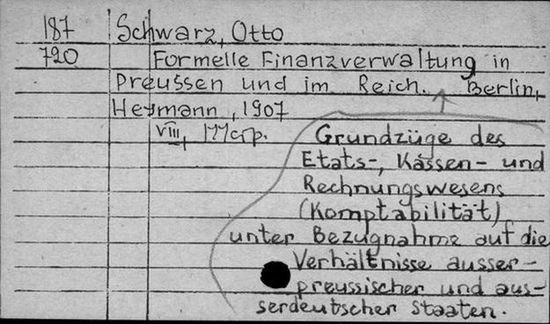 187 Schwarz, Otto
720 Formelle Finanzverwaltung in
Preussen und im Reich. Berlin,
Heymann, 1907
VIII,
Grundzüge des
Etats-, Kassen- und
Rechnungswesens
(Komptabilität)
unter Bezugnahme auf die
Verhältnisse ausser-
preussischer und aus-
serdeutscher Staaten.